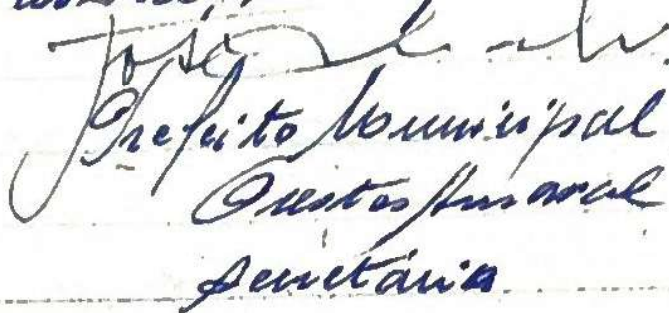 José
Prefeito Municipal
Orestes Amaral
Secretária